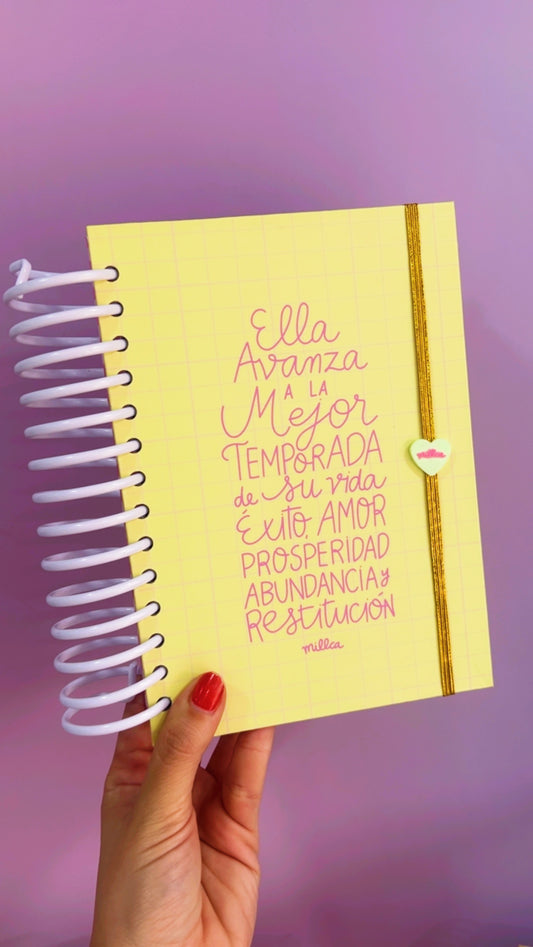 Ella
Avanza
A LA
Mejor
TEMPORADA
de su vida
ÉXITO, AMOR
PROSPERIDAD
ABUNDANCIA y
RESTITUCIÓN
millca
millca